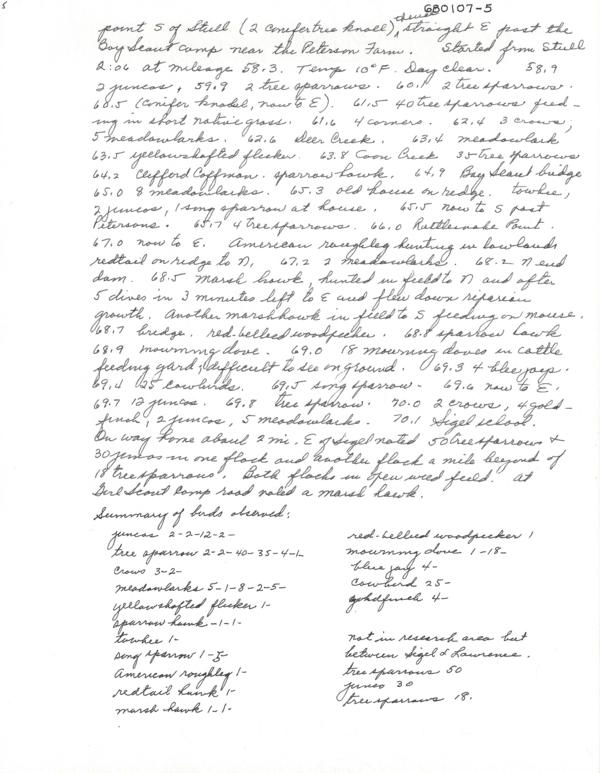 680107-5
point S of Stull (2 conifer tree knoll), straight E past the
Boy Scout camp near the Peterson Farm. Started from Stull
2:06 at mileage 58.3. Temp 10°F. Day clear. 58.9
2 juncos, 59.9 2 tree sparrows. 60.1 2 tree sparrows.
60.5 (conifer knobel, now to E). 61.5 40 tree sparrows feed-
ing in short native grass. 61.6 4 corners. 62.4 3 crows,
5 meadowlarks. 62.6 Deer Creek. 63.4 meadowlark
63.5 yellowshafted flicker. 63.8 Coon Creek 35 tree sparrows
64.2 Clifford Coffman. sparrow hawk. 64.9 Boy Scout bridge
65.0 8 meadowlarks. 65.3 old house on ridge. towhee,
2 juncos, 1 song sparrow at house. 65.5 now to S past
Petersons. 65.7 4 tree sparrows. 66.0 Rattlesnake Point.
67.0 now to E. American roughleg hunting in lowland,
redtail on ridge to N, 67.2 2 meadowlarks. 68.2 N end
dam. 68.5 marsh hawk, hunted in field to N and after
5 dives in 3 minutes left to E and flew down riparian
growth. Another marsh hawk in field to S feeding on mouse.
68.7 bridge. red-bellied woodpecker. 68.8 sparrow hawk
68.9 mourning dove. 69.0 18 mourning doves in cattle
feeding yard; difficult to see on ground. 69.3 4 blue jays.
69.4 25 cowbirds. 69.5 song sparrow - 69.6 now to E.
69.7 12 juncos. 69.8 tree sparrow. 70.0 2 crows, 4 gold-
finch, 2 juncos, 5 meadowlarks. 70.1 Sigel school.
On way home about 2 mi. E of Sigel noted 50 tree sparrows &
30 juncos in one flock and another flock a mile beyond of
18 tree sparrows. Both flocks in open weed field. At
Girl Scout Camp road noted a marsh hawk.
Summary of birds observed:
juncos 2-2-12-2-
tree sparrow 2-2-40-35-4-1-
crows 3-2-
meadowlarks 5-1-8-2-5-
yellowshafted flicker 1-
sparrow hawk -1-1-
towhee 1-
song sparrow 1-
American roughleg 1-
redtail hawk 1-
marsh hawk 1-1-
red-bellied woodpecker 1
mourning dove 1-18-
blue jay 4-
cowbird 25-
goldfinch 4-
not in research area but
between Sigel & Lawrence.
tree sparrows 50
junco 30
tree sparrows 18.